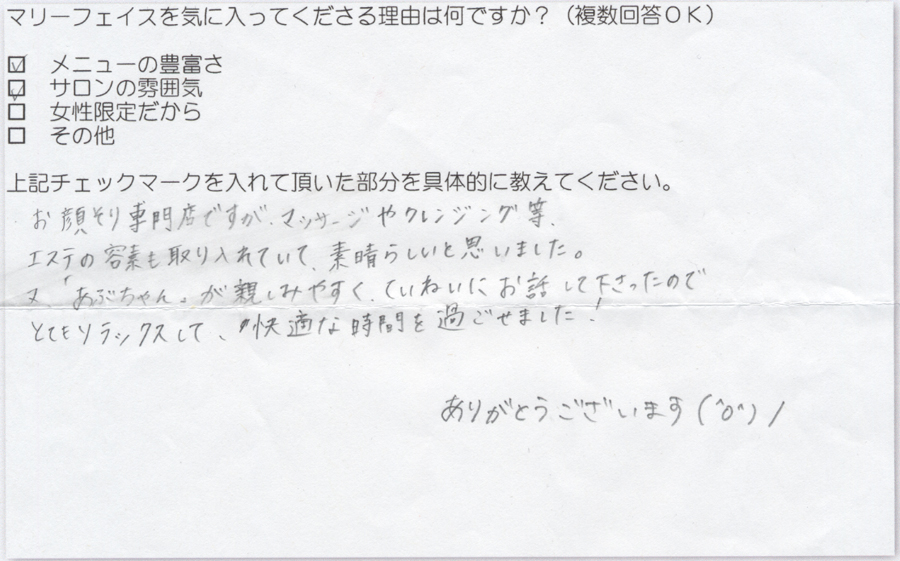 マリーフェイスを気に入ってくださる理由は何ですか?(複数回答OK)
☑ メニューの豊富さ
☑ サロンの雰囲気
□ 女性限定だから
□ その他
上記チェックマークを入れて頂いた部分を具体的に教えてください。
お顔そり専門店ですが、マッサージやクレンジング等、
エステの容素も取り入れていて、素晴らしいと思いました。
又「あぶちゃん」が親しみやすく、ていねいにお話して下さったので
とてもリラックスして、快適な時間を過ごせました!
ありがとうございます(^o^)/